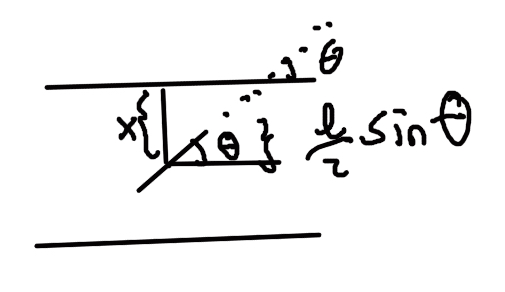 θ
x
θ
l/2 sin θ